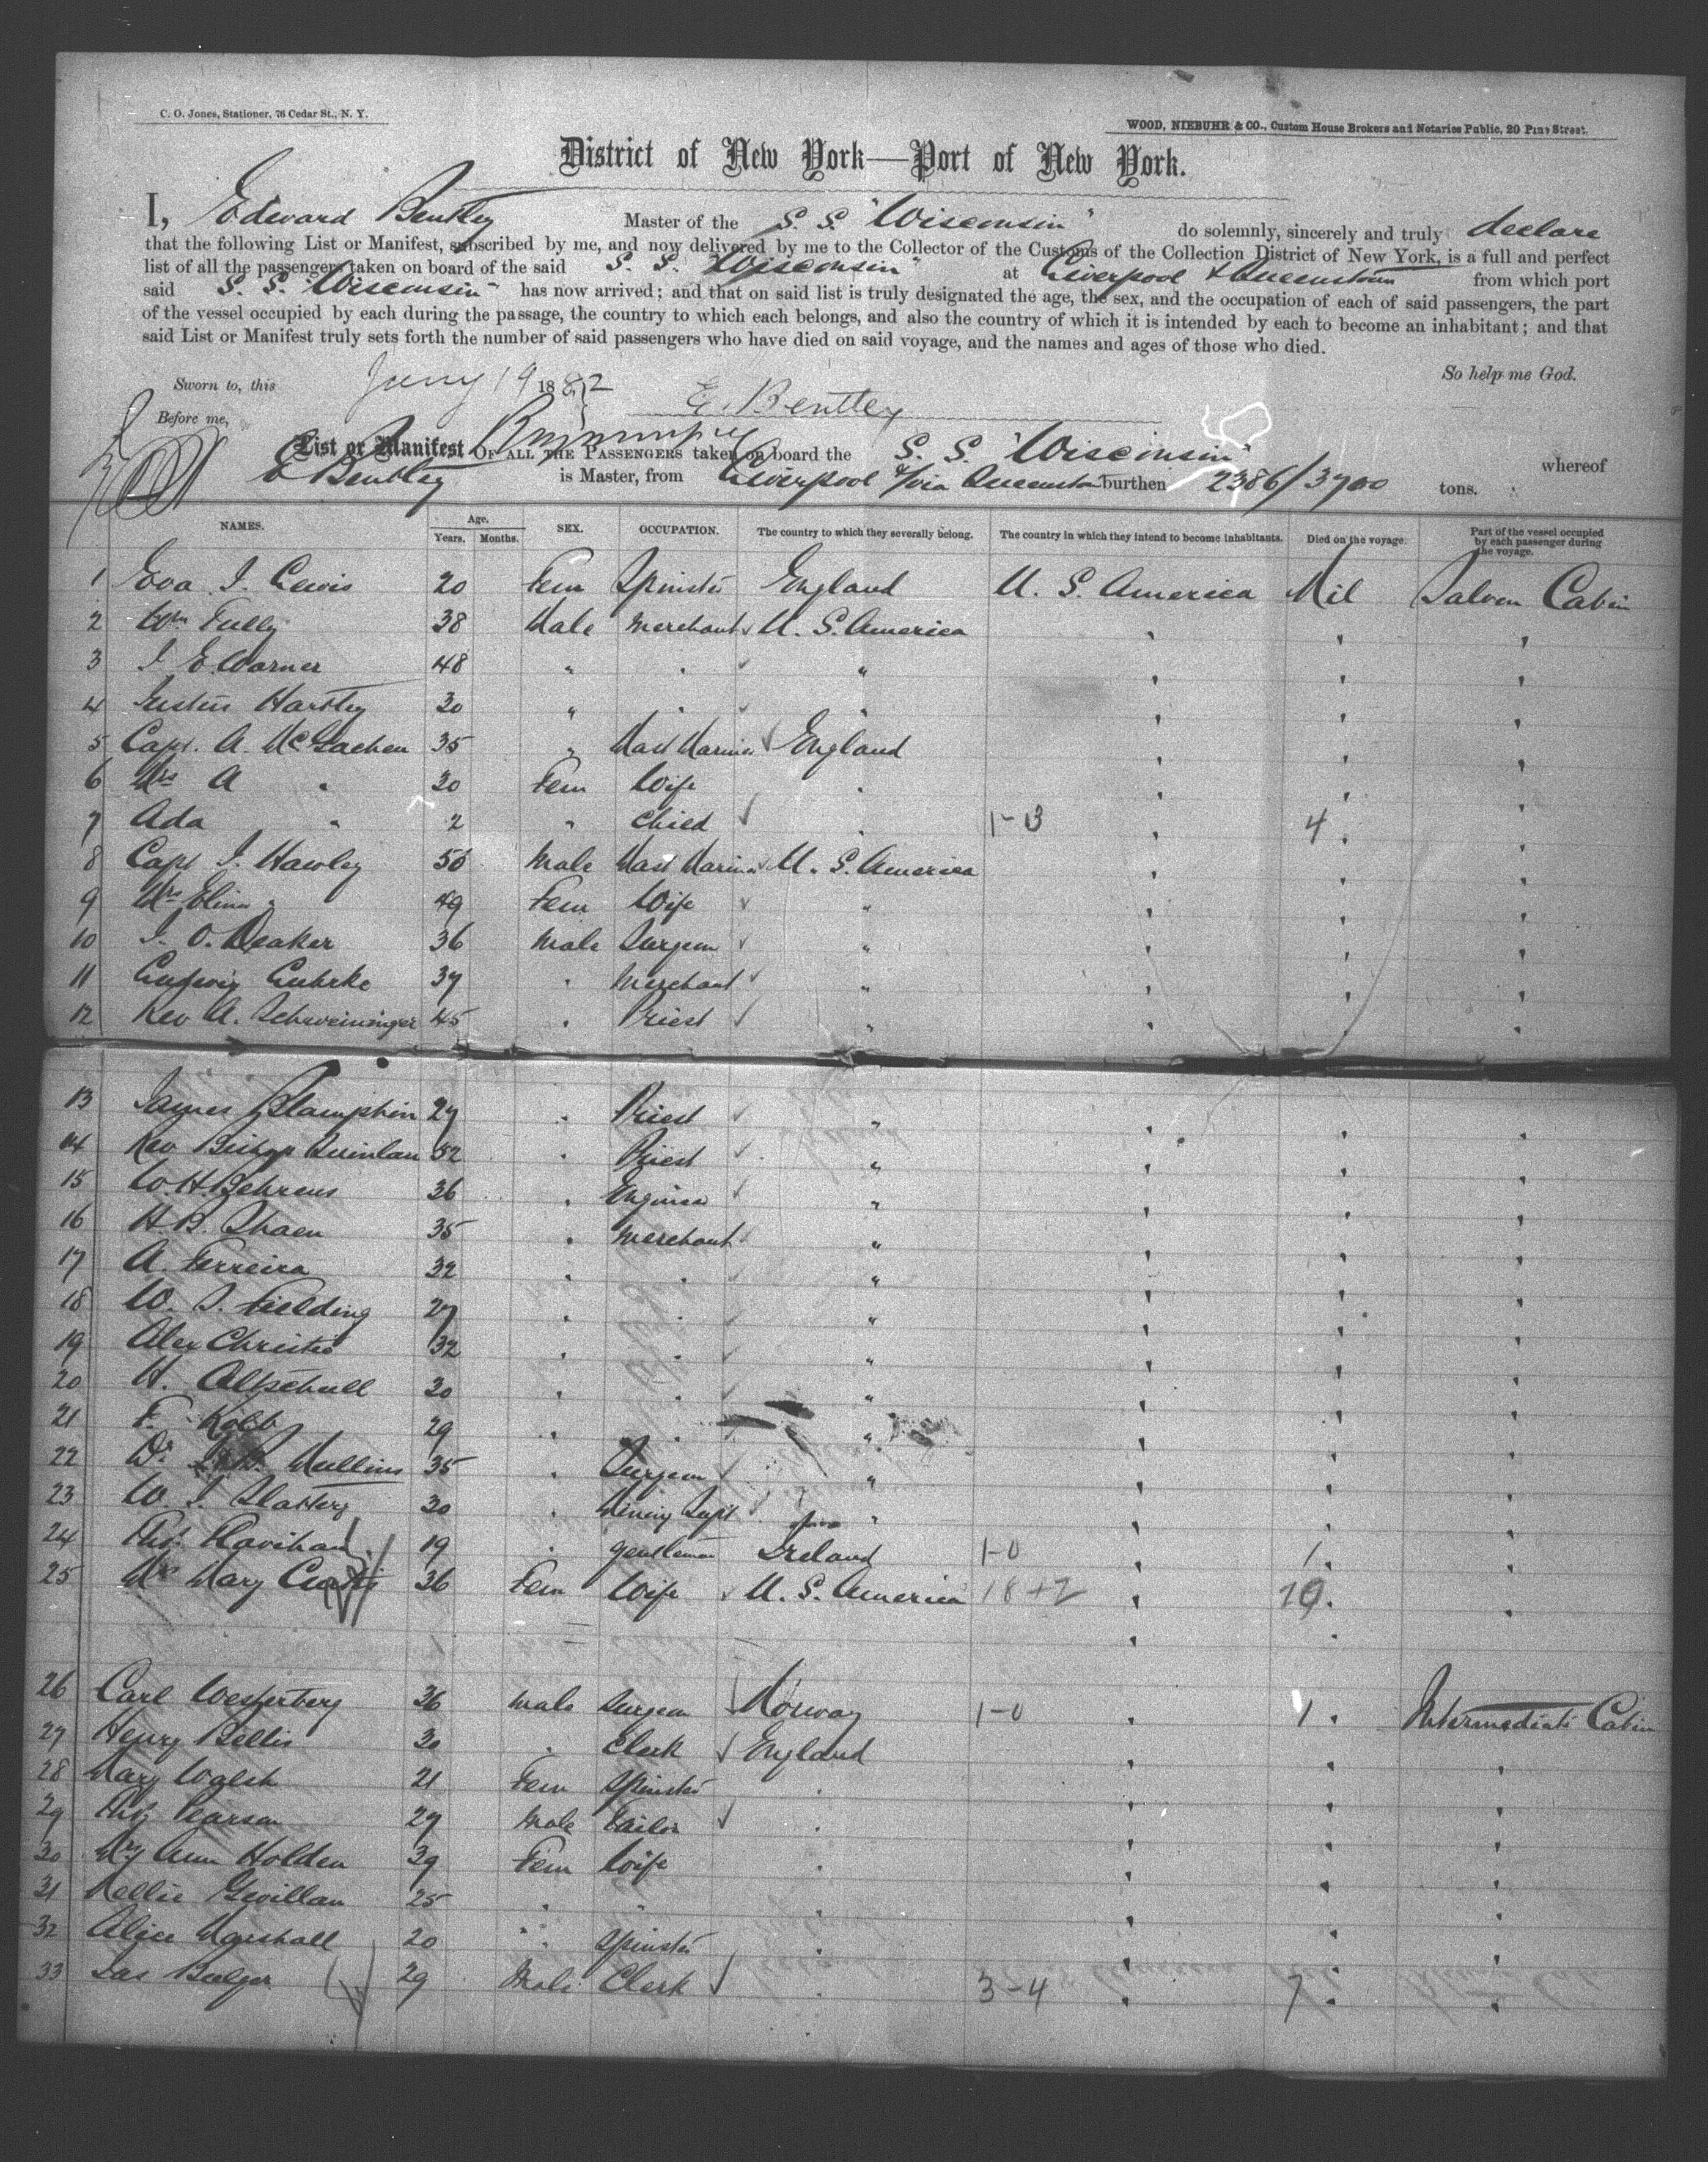 C. O. Jones, Stationer, 76 Cedar St., N. Y.
WOOD, NIEBUHR & CO., Custom House Brokers and Notaries Public, 20 Pine Street.
District of New York—Port of New York.
I, Edward Bentley Master of the S. S. "Wisconsin" do solemnly, sincerely and truly declare
that the following List or Manifest, subscribed by me, and now delivered by me to the Collector of the Customs of the Collection District of New York, is a full and perfect
list of all the passengers taken on board of the said S. S. "Wisconsin" at Liverpool & Queenstown from which port
said S. S. "Wisconsin" has now arrived; and that on said list is truly designated the age, the sex, and the occupation of each of said passengers, the part
of the vessel occupied by each during the passage, the country to which each belongs, and also the country of which it is intended by each to become an inhabitant; and that
said List or Manifest truly sets forth the number of said passengers who have died on said voyage, and the names and ages of those who died.
So help me God.
Sworn to, this Jany 19 1882
E. Bentley
Before me,
List or Manifest OF ALL THE PASSENGERS taken on board the S. S. "Wisconsin" whereof
E Bentley is Master, from Liverpool &/via Queenstown burthen 2386/3700 tons.
NAMES. Age. Years. Months. SEX. OCCUPATION. The country to which they severally belong. The country in which they intend to become inhabitants. Died on the voyage. Part of the vessel occupied by each passenger during the voyage.
1 Eva J. Lewis 20 Fem Spinster England U. S. America Nil Saloon Cabin
2 Wm Tully 38 Male Merchant U. S. America
3 J E. Warner 48 " " "
4 Hartley 30 " " "
5 Capt. A. McLachen 35 " Mast Mariner England
6 Mrs A " 30 Fem Wife "
7 Ada " 2 " Child " 1-3 4
8 Capt J. Hawley 50 Male Mast Mariner U. S. America
9 Mrs " 49 Fem Wife "
10 J. O. Deaker 36 Male Surgeon "
11 Ludwig Luhrke 37 " Merchant "
12 Rev A. Schweininger 45 " Priest "
13 James Blamphin 27 " Priest "
14 Rev Bishop Quinlan 52 " Priest "
15 W. H. Behrens 36 " Engineer "
16 H. B. Shaen 35 " Merchant "
17 A. Ferreira 32 " " "
18 W. S. Fielding 27 " " "
19 Alex Christie 32 " " "
20 H. Altschull 30 " " "
21 F. Kolb 29 " " "
22 Dr Mullins 35 " Surgeon "
23 W. J. Slattery 30 " Mining Supt "
24 Flavihan 19 " gentleman Ireland 1-0 1
25 Mrs Mary Curtis 36 Fem Wife U. S. America 18+2 19
26 Carl Westerberg 36 Male Surgeon Norway 1-0 1 Intermediate Cabin
27 Henry Bellis 30 " Clerk England
28 Mary Walsh 21 Fem Spinster "
29 Pearson 27 Male Tailor "
30 Mrs Ann Holden 39 Fem Wife "
31 Nellie Gwillan 25 " " "
32 Alice Marshall 20 " Spinster "
33 Jas Bulger 29 Male Clerk " 3-4 7